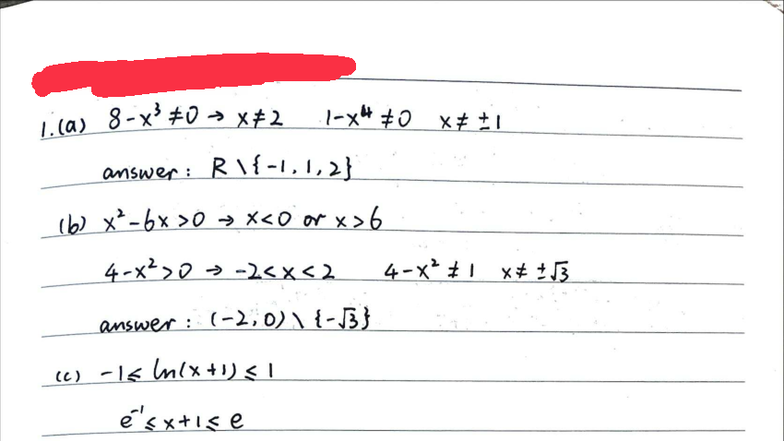 1.(a) 8-x³≠0 → x≠2 1-x⁴≠0 x≠±1
answer: R\{-1,1,2}
(b) x²-6x>0 → x<0 or x>6
4-x²>0 → -2<x<2 4-x²≠1 x≠±√3
answer: (-2,0)\{-√3}
(c) -1≤ln(x+1)≤1
e⁻¹≤x+1≤e